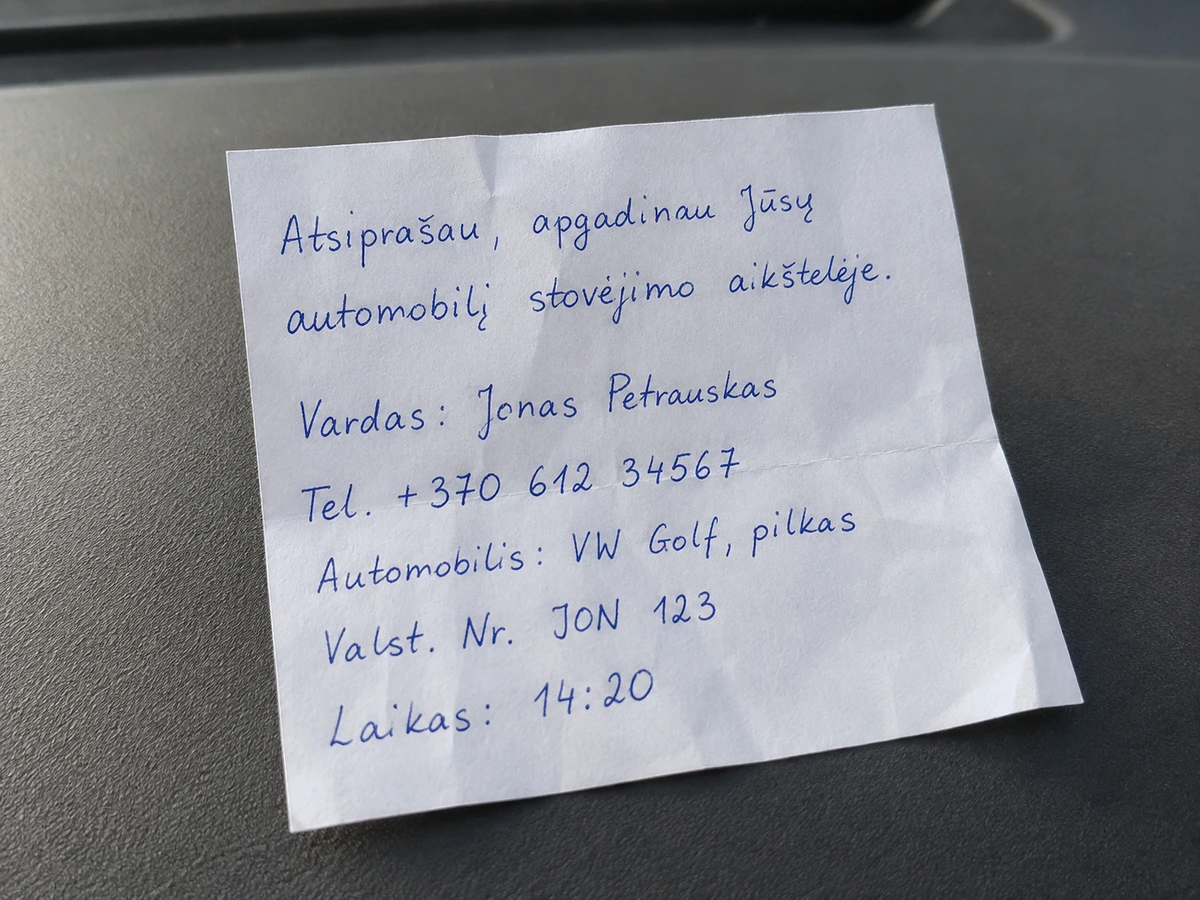 Atsiprašau, apgadinau Jūsų
automobilį stovėjimo aikštelėje.
Vardas: Jonas Petrauskas
Tel. +370 612 34567
Automobilis: VW Golf, pilkas
Valst. Nr. JON 123
Laikas: 14:20